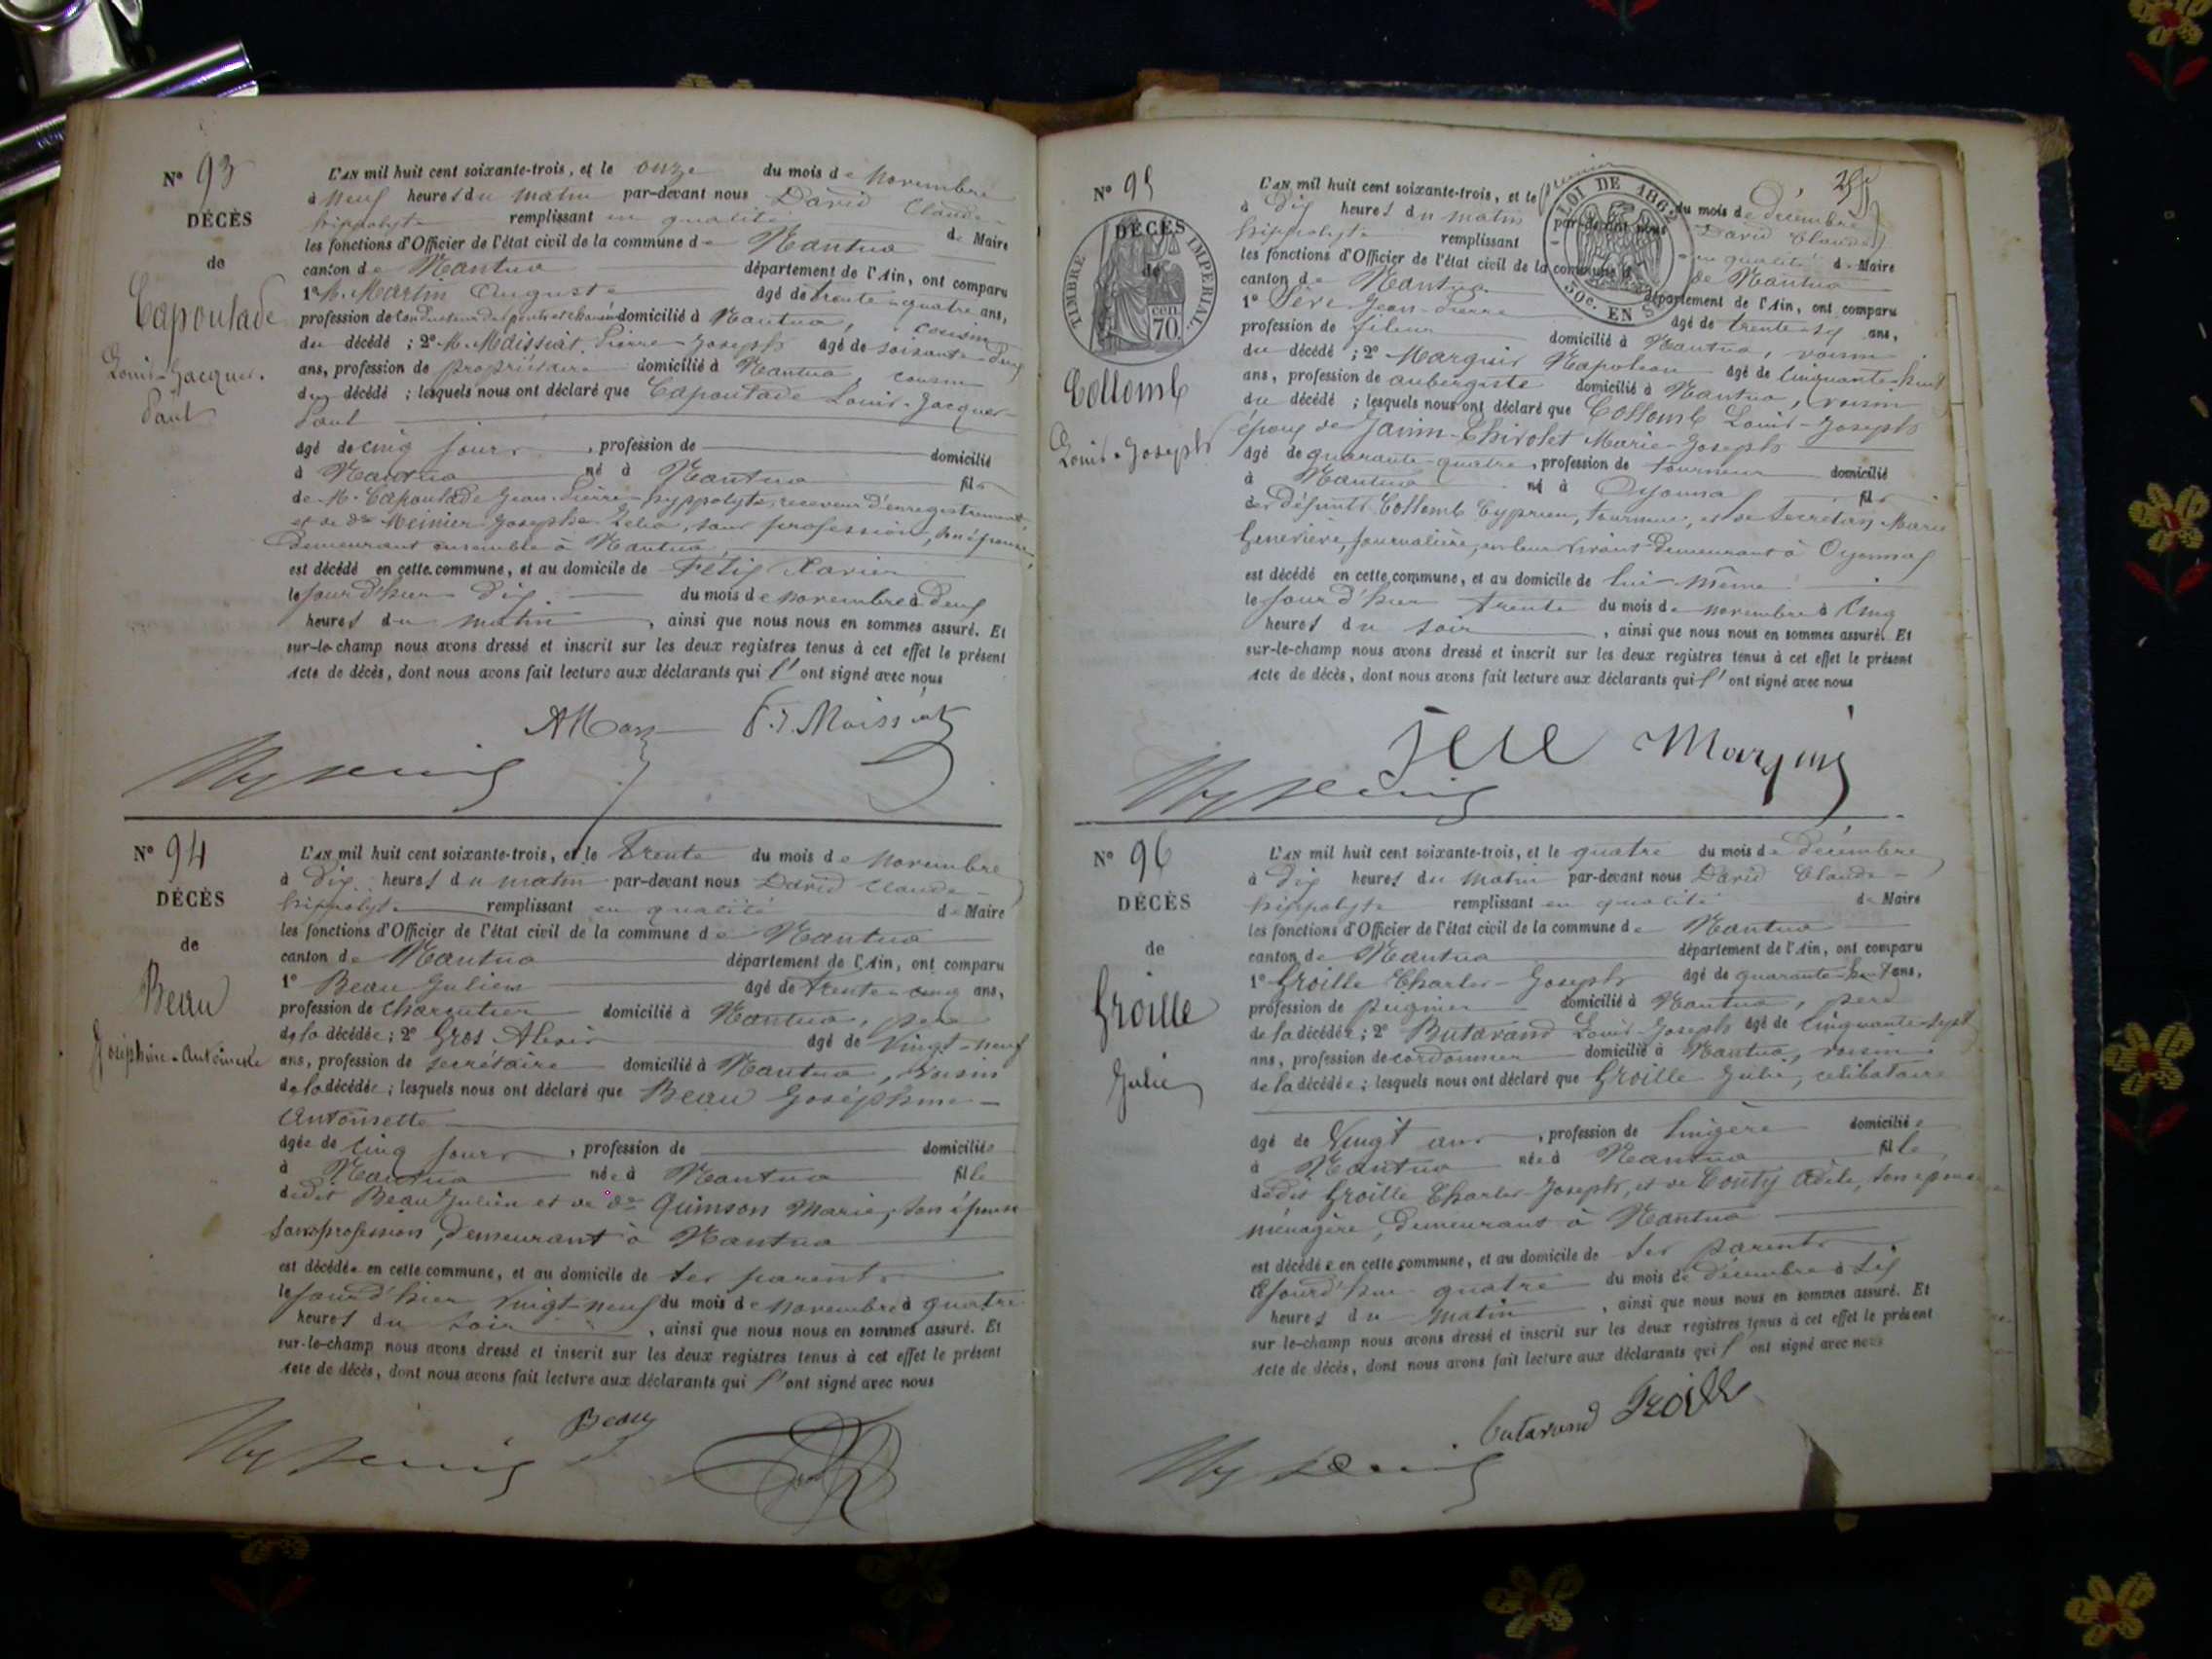 N° 93
DÉCÈS
de
Capoulade
Louis-Jacques-
Paul
L'AN mil huit cent soixante-trois, et le onze du mois de Novembre
à neuf heures du matin par-devant nous David Claude-
hippolyte remplissant en qualité de Maire
les fonctions d'Officier de l'état civil de la commune de Nantua
canton de Nantua département de l'Ain, ont comparu
1° M. Martin Auguste âgé de trente-quatre ans,
profession de Conducteur des ponts et chaussées domicilié à Nantua, cousin
du décédé ; 2° M. Moissiat Pierre-Joseph âgé de soixante-deux
ans, profession de propriétaire domicilié à Nantua, cousin
du décédé ; lesquels nous ont déclaré que Capoulade Louis-Jacques-
Paul
âgé de cinq jours, profession de domicilié
à Nantua né à Nantua fils
de M. Capoulade Jean-Pierre-hyppolyte, receveur d'enregistrement,
et de de Meinier Josephe Zelia, sans profession, son épouse,
demeurant ensemble à Nantua,
est décédé en cette commune, et au domicile de Félix Xavier
le jour d'hier dix du mois de novembre à deux
heures du matin, ainsi que nous nous en sommes assuré. Et
sur-le-champ nous avons dressé et inscrit sur les deux registres tenus à cet effet le présent
Acte de décès, dont nous avons fait lecture aux déclarants qui l'ont signé avec nous
P. J. Moissiat
N° 94
DÉCÈS
de
Beau
Joséphine-Antoinette
L'AN mil huit cent soixante-trois, et le trente du mois de novembre
à dix heures du matin par-devant nous David Claude-
hippolyte remplissant en qualité de Maire
les fonctions d'Officier de l'état civil de la commune de Nantua
canton de Nantua département de l'Ain, ont comparu
1° Beau Julien âgé de trente-cinq ans,
profession de Charcutier domicilié à Nantua, père
de la décédée ; 2° Gros Alexis âgé de vingt-neuf
ans, profession de secrétaire domicilié à Nantua, voisin
de la décédée ; lesquels nous ont déclaré que Beau Joséphine-
Antoinette
âgée de cinq jours, profession de domiciliée
à Nantua née à Nantua fille
dudit Beau Julien et de de Quinson Marie, son épouse
sans profession, demeurant à Nantua
est décédée en cette commune, et au domicile de ses parents
le jour d'hier vingt-neuf du mois de novembre à quatre
heures du soir, ainsi que nous nous en sommes assuré. Et
sur-le-champ nous avons dressé et inscrit sur les deux registres tenus à cet effet le présent
Acte de décès, dont nous avons fait lecture aux déclarants qui l'ont signé avec nous
Beau
N° 95
DÉCÈS
de
TIMBRE IMPERIAL
70 cen
LOI DE 1862
50c. EN SUS
Collomb
Louis-Joseph
L'AN mil huit cent soixante-trois, et le premier du mois de Décembre
à dix heures du matin par-devant nous David Claude
hippolyte remplissant en qualité de Maire
les fonctions d'Officier de l'état civil de la commune de Nantua
canton de Nantua département de l'Ain, ont comparu
1° Sève Jean-Pierre âgé de trente-six ans,
profession de fileur domicilié à Nantua, voisin
du décédé ; 2° Marquis Napoléon âgé de cinquante-huit
ans, profession de aubergiste domicilié à Nantua, voisin
du décédé ; lesquels nous ont déclaré que Collomb Louis-Joseph
époux de Janin-Thivolet Marie-Joseph
âgé de quarante-quatre, profession de tourneur domicilié
à Nantua né à Oyonnax fils
des défunts Collomb Cyprien, tourneur, et de Secretan Marie
Geneviève, journalière, en leur vivant demeurant à Oyonnax
est décédé en cette commune, et au domicile de lui-même
le jour d'hier trente du mois de novembre à cinq
heures du soir, ainsi que nous nous en sommes assuré. Et
sur-le-champ nous avons dressé et inscrit sur les deux registres tenus à cet effet le présent
Acte de décès, dont nous avons fait lecture aux déclarants qui l'ont signé avec nous
Seve Marquis
N° 96
DÉCÈS
de
Groille
Julie
L'AN mil huit cent soixante-trois, et le quatre du mois de décembre
à dix heures du matin par-devant nous David Claude-
hippolyte remplissant en qualité de Maire
les fonctions d'Officier de l'état civil de la commune de Nantua
canton de Nantua département de l'Ain, ont comparu
1° Groille Charles-Joseph âgé de quarante-huit ans,
profession de peignier domicilié à Nantua, père
de la décédée ; 2° Butavand Louis-Joseph âgé de cinquante-sept
ans, profession de cordonnier domicilié à Nantua, voisin
de la décédée ; lesquels nous ont déclaré que Groille Julie, célibataire
âgé de vingt ans, profession de lingère domiciliée
à Nantua née à Nantua fille
dudit Groille Charles-Joseph, et de Couty Adèle, son épouse
ménagère, demeurant à Nantua
est décédée en cette commune, et au domicile de ses parents
le jour d'hui quatre du mois de décembre à six
heures du matin, ainsi que nous nous en sommes assuré. Et
sur-le-champ nous avons dressé et inscrit sur les deux registres tenus à cet effet le présent
Acte de décès, dont nous avons fait lecture aux déclarants qui l'ont signé avec nous
butavand Groille